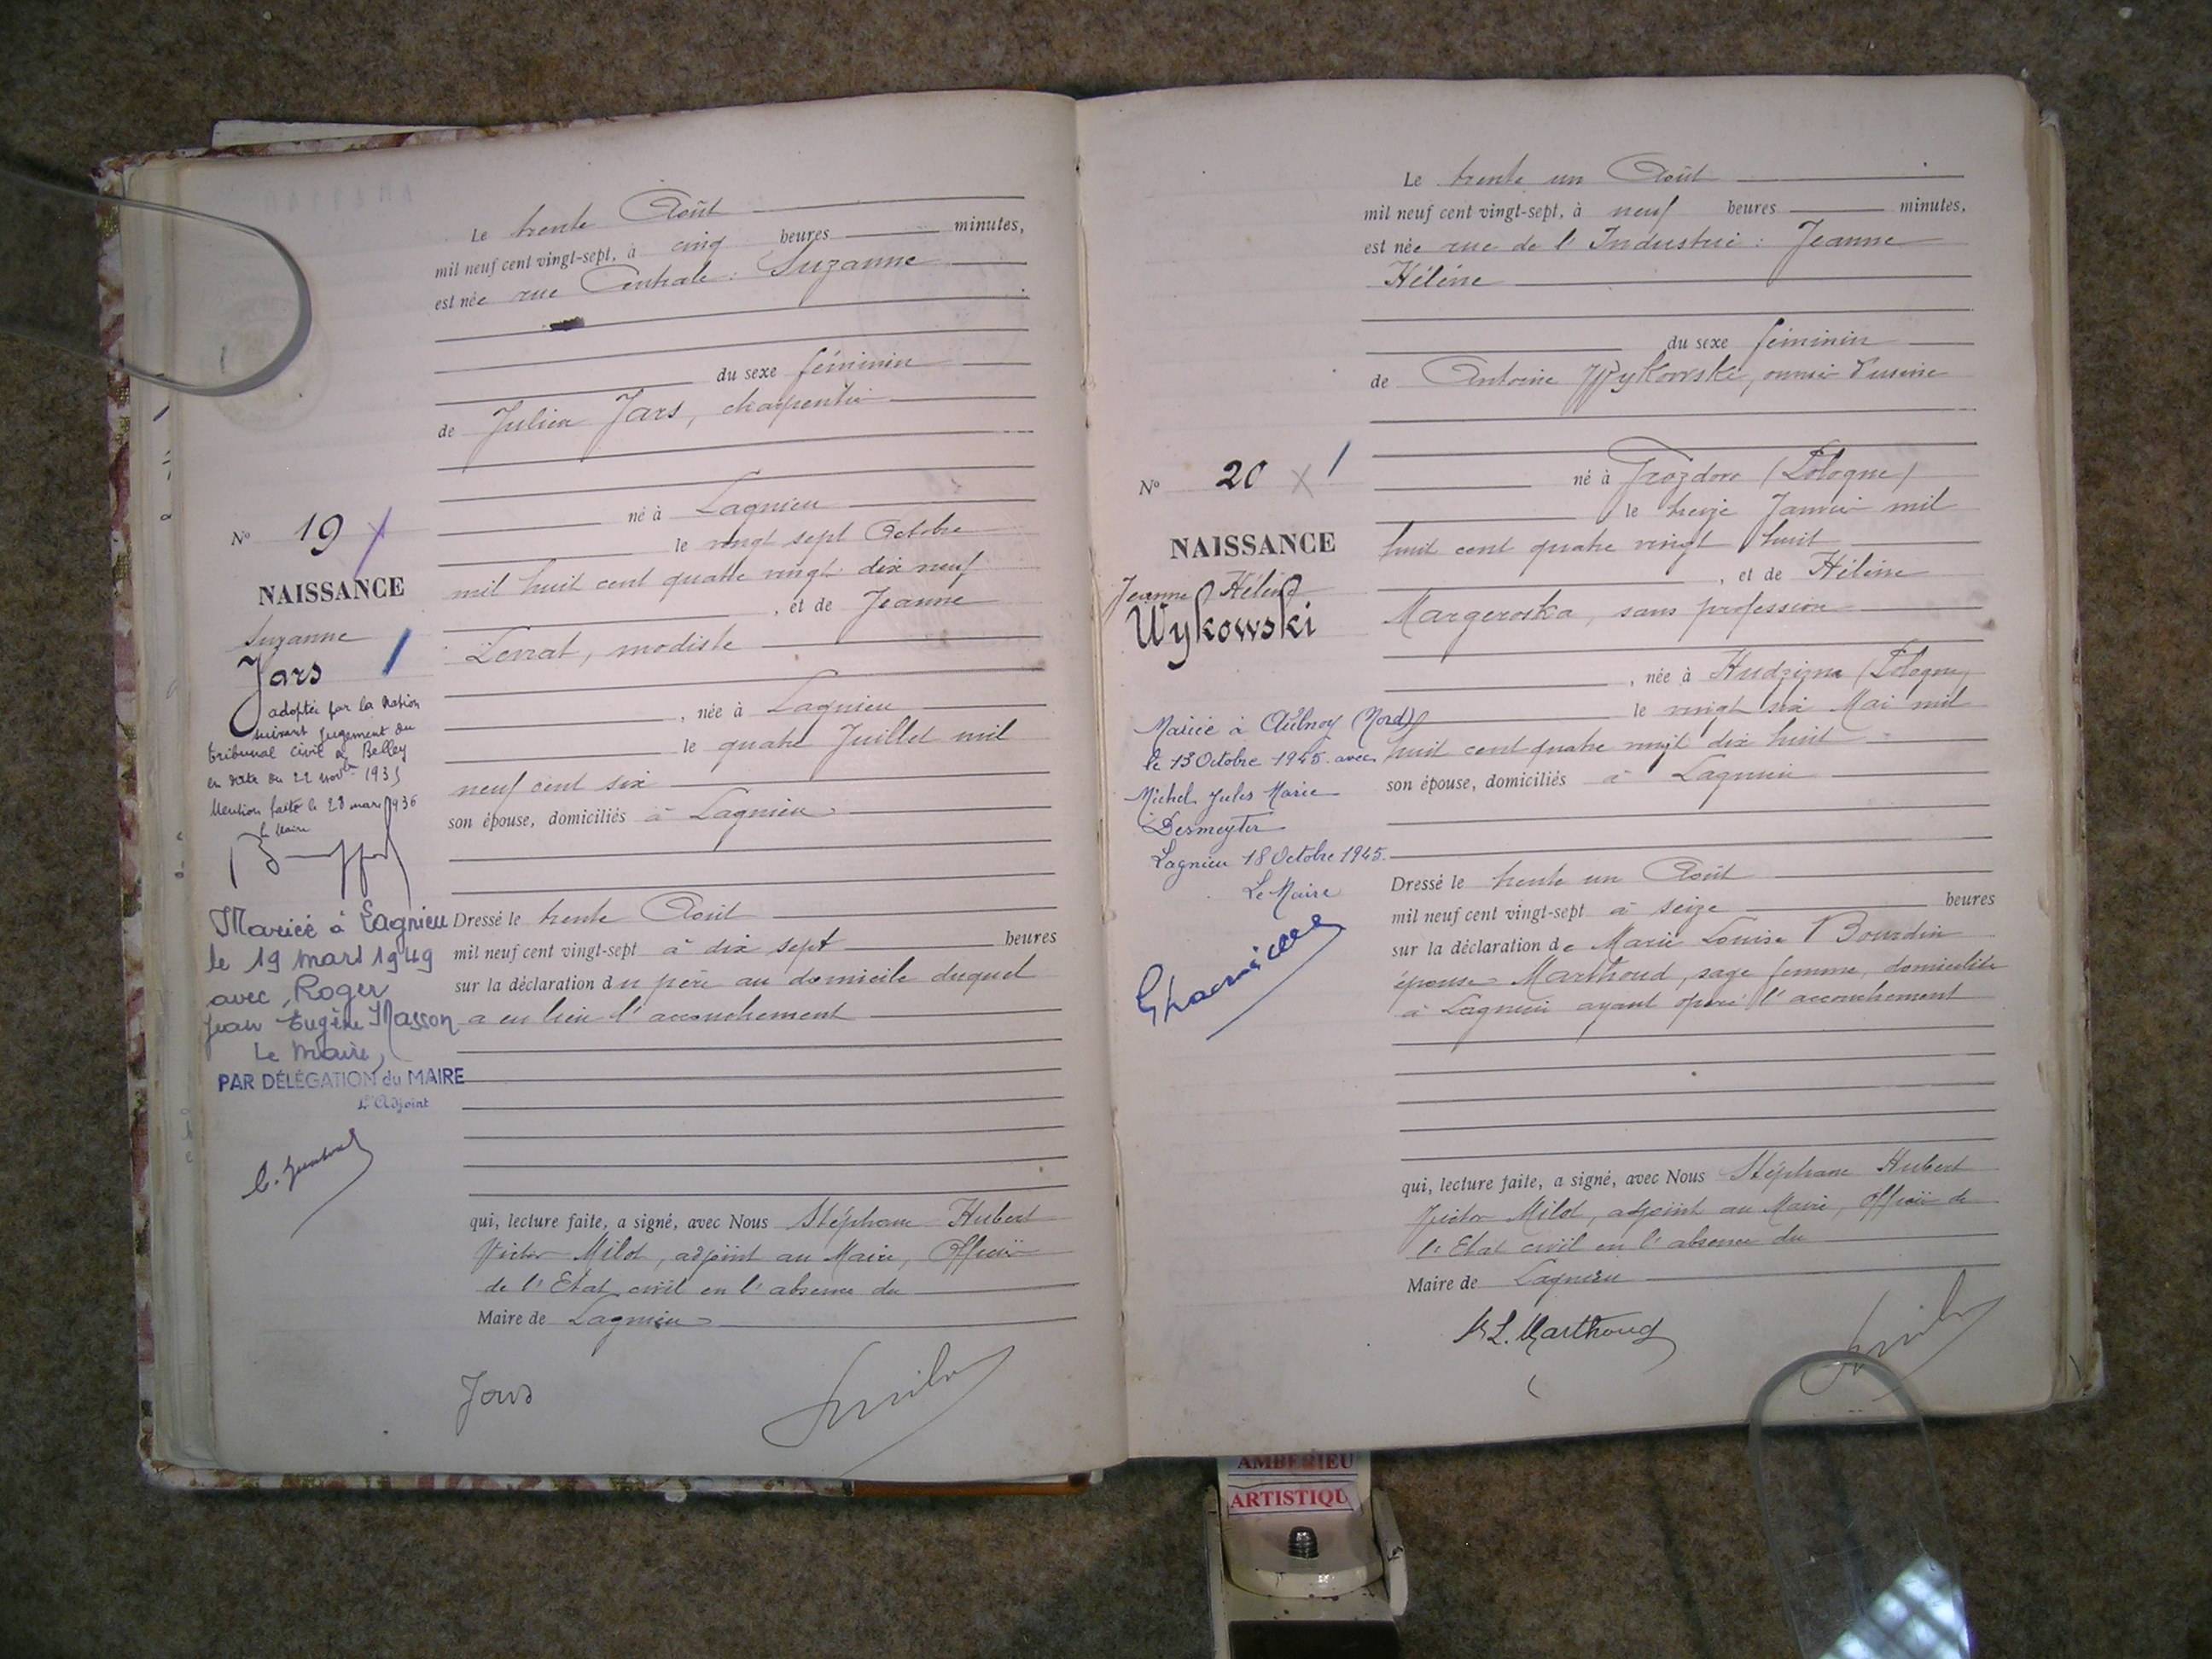 Le trente Août
mil neuf cent vingt-sept, à cinq heures minutes,
est née rue Centrale : Suzanne
du sexe féminin
de Julien Jars, charpentier
né à Lagnieu
le vingt sept Octobre
mil huit cent quatre vingt dix neuf
, et de Jeanne
Levrat, modiste
, née à Lagnieu
le quatre Juillet mil
neuf cent six
son épouse, domiciliés à Lagnieu
Dressé le trente Août
mil neuf cent vingt-sept à dix sept heures
sur la déclaration du père au domicile duquel
a eu lieu l'accouchement
qui, lecture faite, a signé, avec Nous Stéphane Hubert
Victor Milot, adjoint au Maire, Officier
de l'Etat civil en l'absence du
Maire de Lagnieu
Jars
No 19
NAISSANCE
Suzanne
Jars
adoptée par la Nation
suivant jugement du
tribunal civil de Belley
en date du 22 novbre 1935
Mention faite le 28 mars 1936
Le Maire
Mariée à Lagnieu
le 19 mars 1949
avec Roger
Jean Eugène Masson
Le Maire,
PAR DÉLÉGATION du MAIRE
L'Adjoint
Le trente un Août
mil neuf cent vingt-sept, à neuf heures minutes,
est née rue de l'Industrie : Jeanne
Hélène
du sexe féminin
de Antoine Wykowski, ouvrier d'usine
né à Grozdow (Pologne)
le treize Janvier mil
huit cent quatre vingt huit
, et de Hélène
Margeroska, sans profession
, née à Hudzizna (Pologne)
le vingt six Mai mil
huit cent quatre vingt dix huit
son épouse, domiciliés à Lagnieu
Dressé le trente un Août
mil neuf cent vingt-sept à seize heures
sur la déclaration de Marie Louise Bourdin
épouse Marthoud, sage femme, domiciliée
à Lagnieu ayant opéré l'accouchement
qui, lecture faite, a signé, avec Nous Stéphane Hubert
Victor Milot, adjoint au Maire, Officier de
l'Etat civil en l'absence du
Maire de Lagnieu
M L. Marthoud
No 20
NAISSANCE
Jeanne Hélène
Wykowski
Mariée à Aulnoy (Nord)
le 13 Octobre 1945 avec
Michel Jules Marie
Desmeyter
Lagnieu 18 Octobre 1945.
Le Maire
AMBERIEU
ARTISTIQU